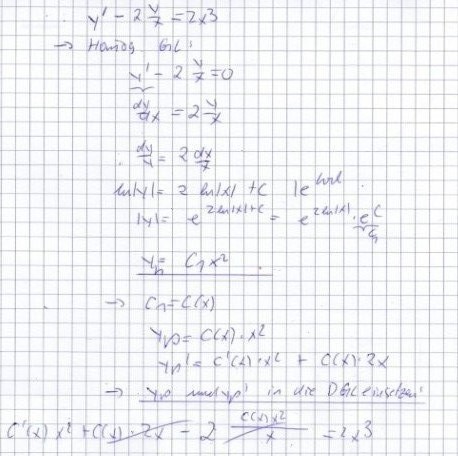 y' - 2 y/x = 2x³
→ Homog Gl:
y' - 2 y/x = 0
dy/dx = 2 y/x
dy/y = 2 dx/x
ln|y| = 2 ln|x| + C |e
|y| = e^(2 ln|x| + C) = e^(2 ln|x|) · e^C
C₁
yₕ = C₁ x²
→ C₁ = C(x)
yp = C(x) · x²
yp' = C'(x) · x² + C(x) · 2x
→ yp und yp' in die DGL einsetzen:
C'(x) x² + C(x) · 2x - 2 C(x) x²/x = 2x³